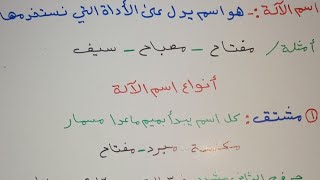 اسم الآلة :- هو اسم يدل على الأداة التي نستخدمها
أمثلة / مفتاح - مصباح - سيف
أنواع اسم الآلة
① مشتق : كل اسم يبدأ بميم ماعدا مسمار
مكنسة مبرد - مفتاح